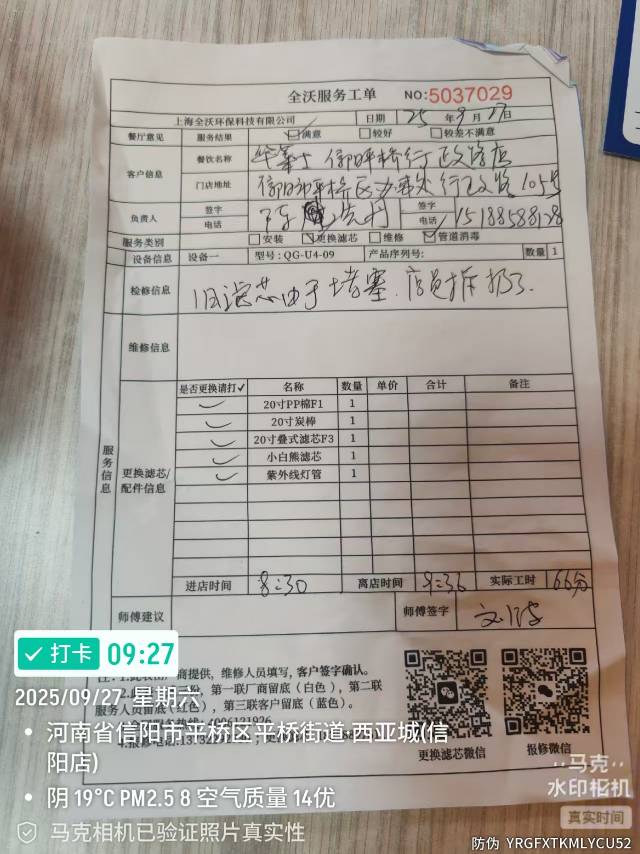 全沃服务工单 NO:5037029
上海全沃环保科技有限公司 日期 25年9月27日
餐厅意见 服务结果 ☑满意 □较好 □较差不满意
客户信息 餐饮名称 华莱士 信阳平桥行政路店
门店地址 信阳平桥区办事处行政路105号
负责人 签字 电话 陈 签字 电话 15188588128
服务类别 □安装 ☑更换滤芯 □维修 ☑管道消毒
设备信息 设备一 型号:QG-U4-09 产品序列号: 数量 1
检修信息 旧滤芯由于堵塞.店员拆扔了.
维修信息
服务信息
更换滤芯/配件信息
是否更换请打✓ 名称 数量 单价 合计 备注
✓ 20寸PP棉F1 1
✓ 20寸炭棒 1
✓ 20寸叠式滤芯F3 1
✓ 小白熊滤芯 1
✓ 紫外线灯管 1
进店时间 8:30 离店时间 9:36 实际工时 66分
师傅建议 师傅签字
商提供，维修人员填写，客户签字确认。
份，第一联厂商留底（白色），第二联
服务人员留底（红色），第三联客户留底（蓝色）。
更换滤芯微信 报修微信
打卡 09:27
2025/09/27 星期六
河南省信阳市平桥区平桥街道·西亚城(信
阳店)
阴 19°C PM2.5 8 空气质量 14优
马克相机已验证照片真实性
马克
水印相机
真实时间
防伪 YRGFXTKMLYCU52